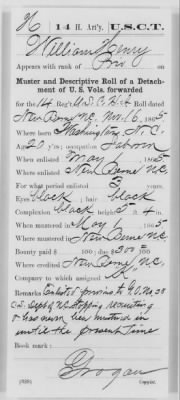 H 14 H. Art'y. U.S.C.T.
William Henry
Appears with rank of Priv on
Muster and Descriptive Roll of a Detach-
ment of U. S. Vols. forwarded
for the 14 Reg't U.S.C. Roll dated
New Berne N.C. Nov. 16, 1865
Where born Washington, N.C.
Age 20 y'rs; occupation Laborer
When enlisted May, 1865
Where enlisted New Berne N.C.
For what period enlisted 3 years.
Eyes black; hair black
Complexion black; 5 ft. 4 in.
When mustered in May, 1865
Where mustered in New Berne N.C.
Bounty paid $ 100; due $ 300
Where credited New Berne N.C.
Company to which assigned K
Remarks: Enlisted previous to G.O. No.
C.S. Dept of N.C. Stopping recruiting
& has never been mustered in
until the present time
Book mark:
Grogan
Copyist.